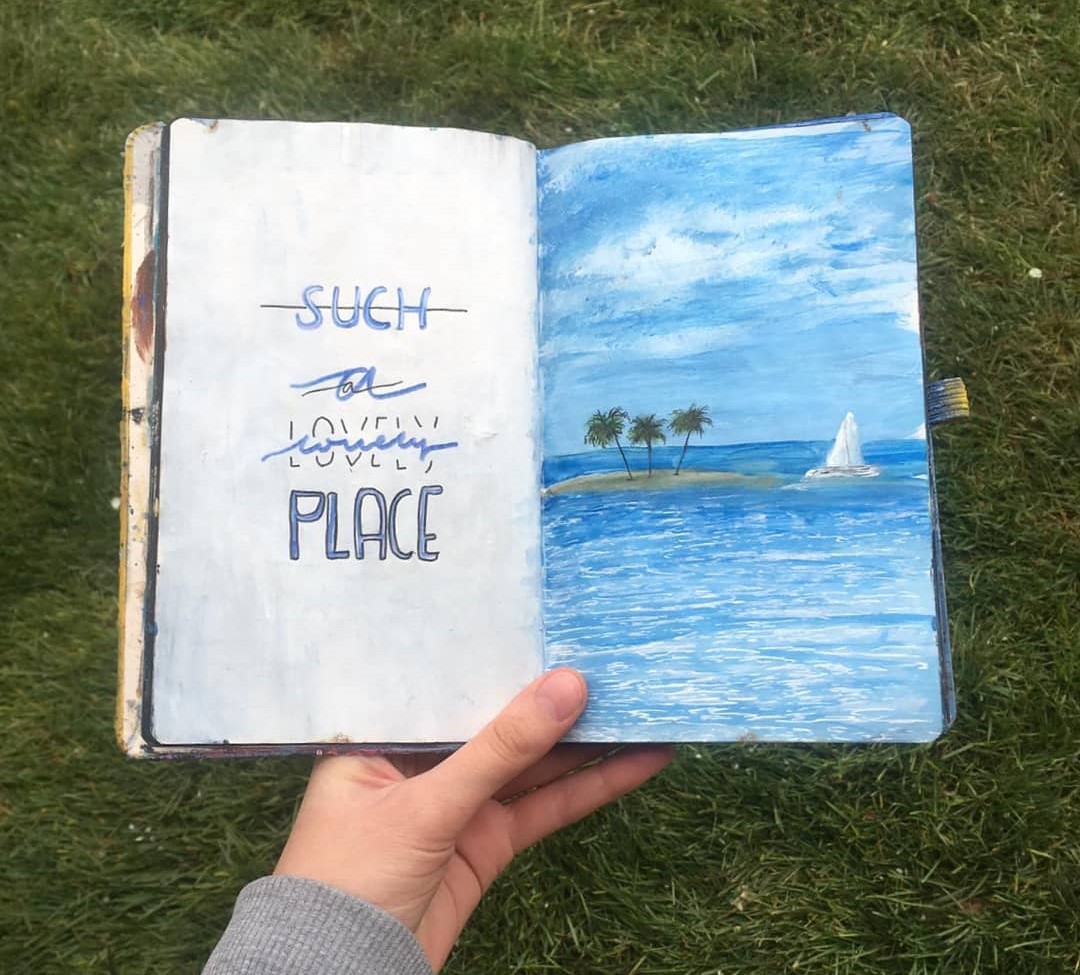 SUCH
a
LOVELY
lovely
PLACE